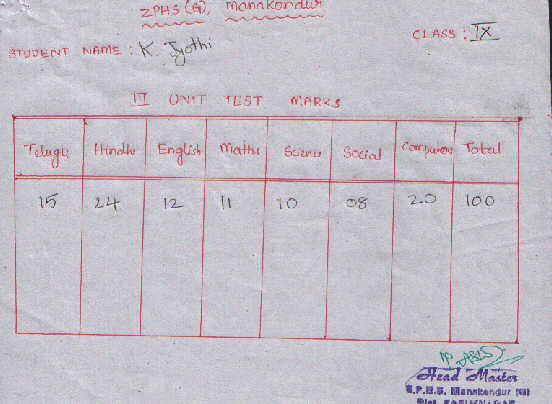 ZPHS (G), manakondur
CLASS: IX
STUDENT NAME: K Jyothi
III UNIT TEST MARKS
Telugu Hindhi English Maths Science Social Computer Total
15 24 12 11 10 08 20 100
Head Master
Z.P.H.S. Manakondur (G)
Dist. KARIMNAGAR